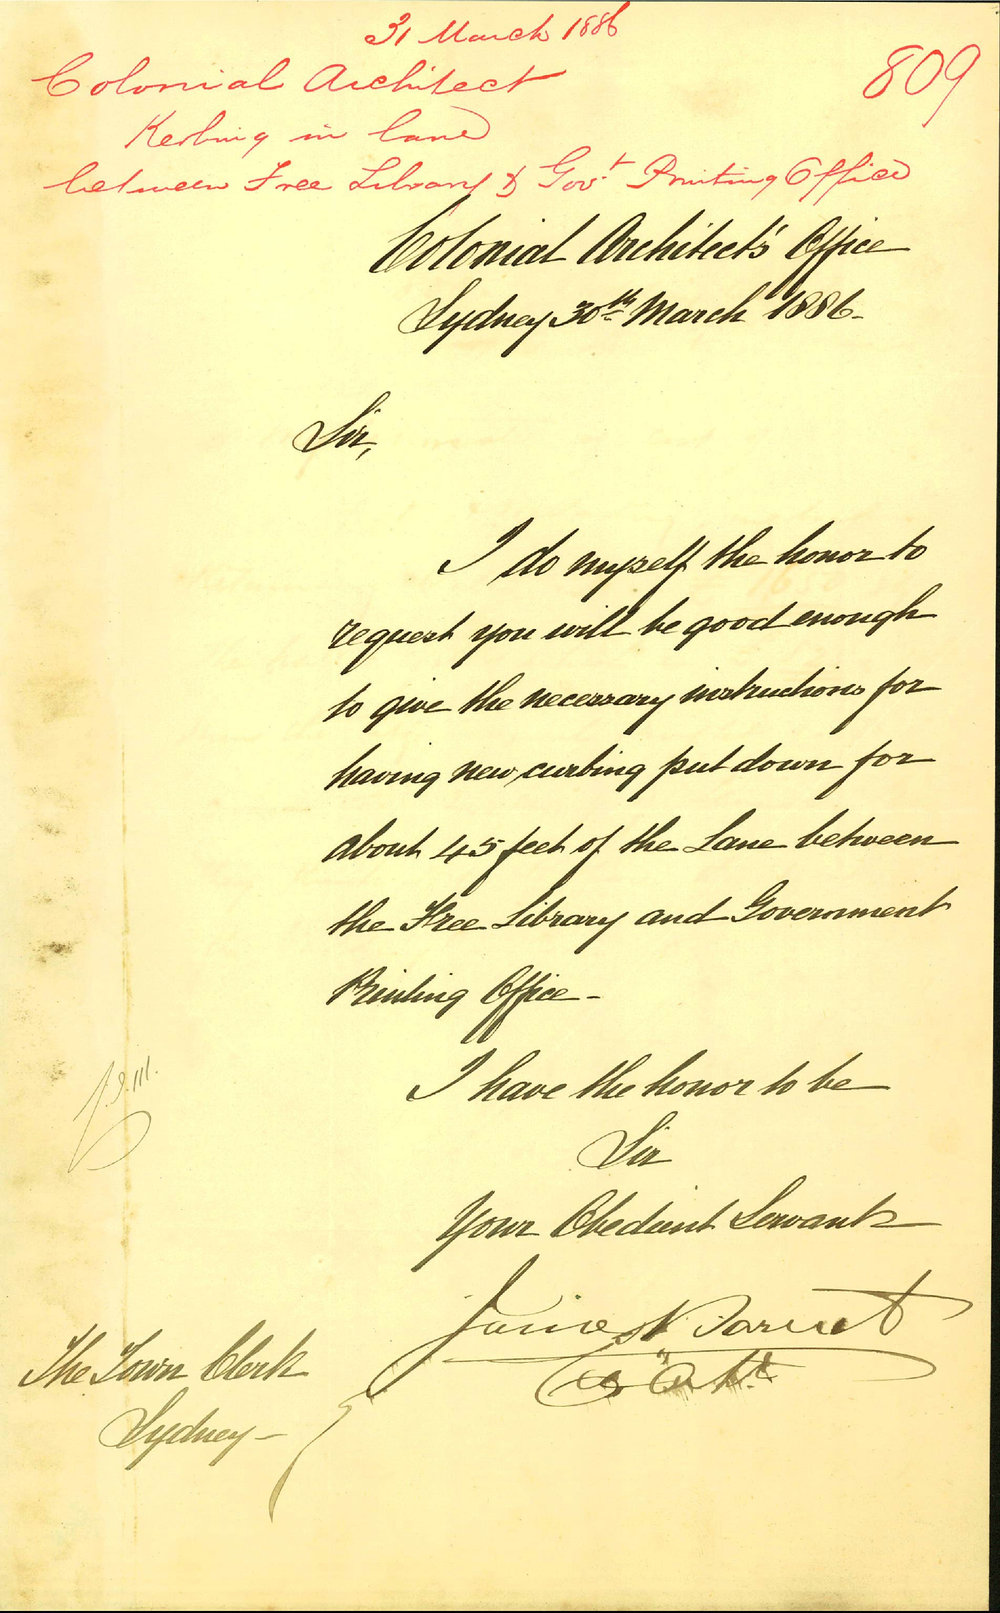 31 March 1886
809
Colonial Architect
Kerbing in lane
between Free Library & Govt Printing Office
Colonial Architect's Office
Sydney 30th March 1886.
Sir,
I do myself the honor to
request you will be good enough
to give the necessary instructions for
having new curbing put down for
about 45 feet of the Lane between
the Free Library and Government
Printing Office -
I have the honor to be
Sir
Your Obedient Servant
James Barnet
Col Archt
The Town Clerk
Sydney -